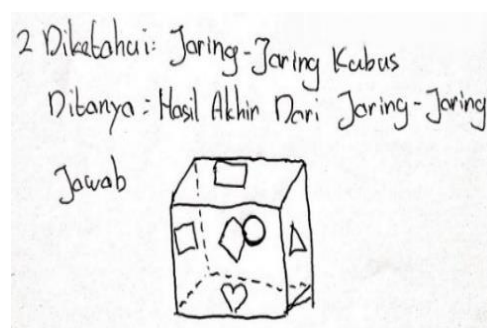 2 Diketahui: Jaring-Jaring Kubus
Ditanya: Hasil Akhir Dari Jaring-Jaring
Jawab